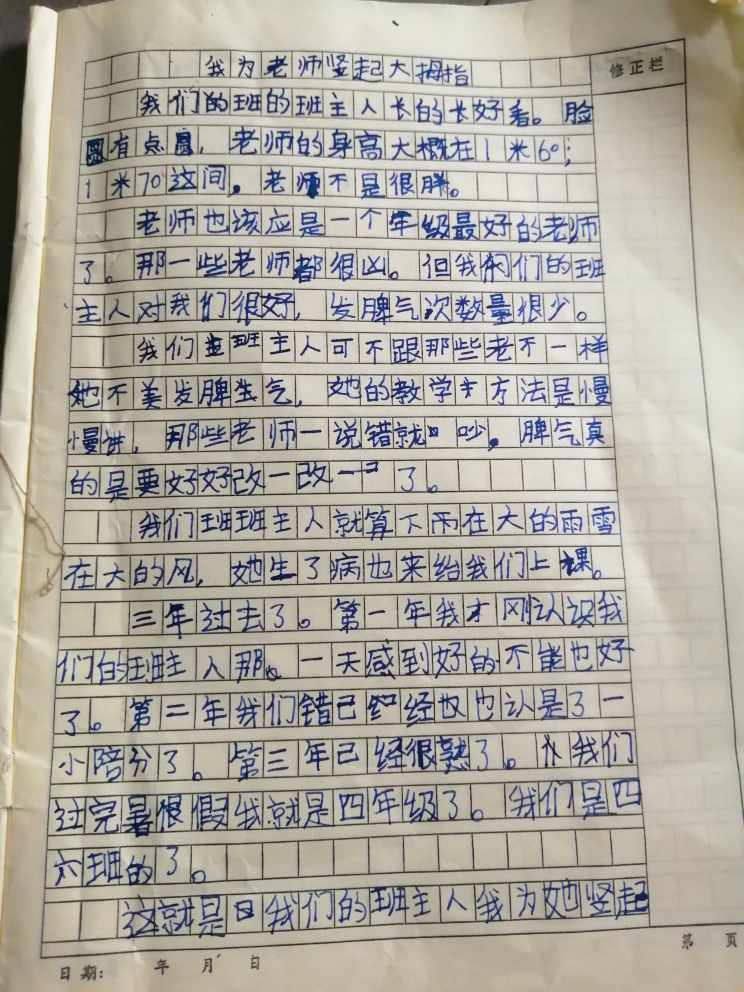 我为老师竖起大拇指
修正栏
我们的班的班主人长的长好看。脸
圆有点圆,老师的身高大概在1米60;
1米70这间。老师不是很胖。
老师也该应是一个年级最好的老师
了。那一些老师都很凶。但我们们的班
主人对我们很好,发脾气次数量很少。
我们班主人可不跟那些老不一样
她不美发脾生气,她的教学方法是慢
慢讲,那些老师一说错就吵。脾气真
的是要好好改一改一了。
我们班班主人就算下雨在大的雨雪
在大的风,她生了病也来给我们上课。
三年过去了。第一年我才刚认识我
们的班主人那。一天感到好的不能也好
了。第二年我们错已经经也认是了一
小陪分了。第三年已经很熟了。我们
过完暑假我就是四年级了。我们是四
六班的了。
这就是我们的班主人我为她竖起
日期: 年 月 日
第 页